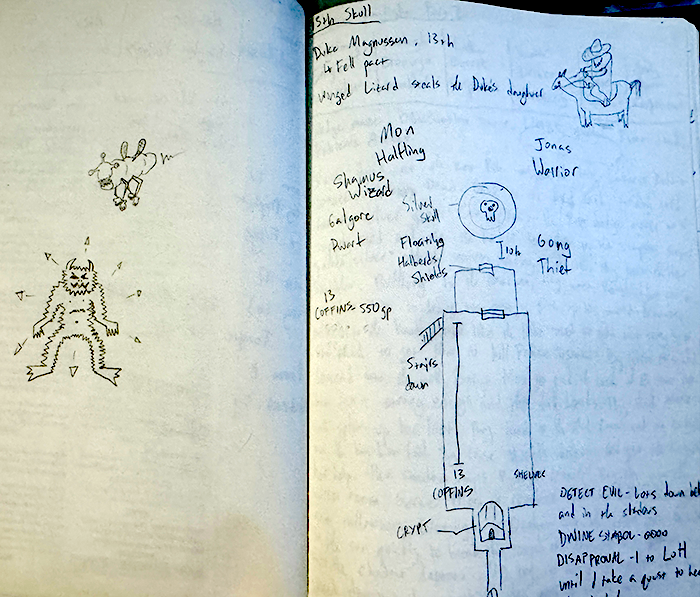 13th Skull
Duke Magnussen, 13th
↳ Fell pact
Winged Lizard steals the Duke's daughter
Mon
Halfling
Jonas
Warrior
Shamus
Wizard
Galgore
Dwarf
Silver
Skull
Floating
Halberds
Shields
10ft
Gong
Thief
13
COFFINS - 550 SP
Stairs
down
13
COFFINS
SHELVES
CRYPT
DETECT EVIL - Lots down bel
and in the shadows
DIVINE SYMBOL - good
DISAPPROVAL - 1 to LOH
until I take a quest to hea